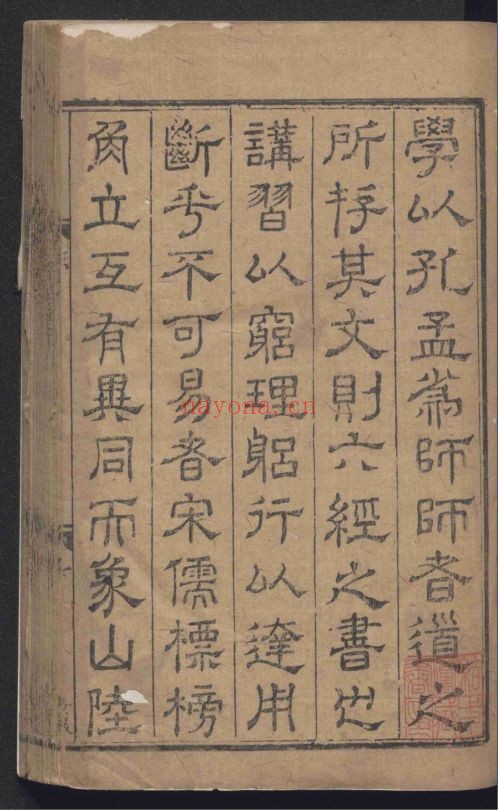 學以孔孟為師師者道之
所存其文則六經之書也
講習以窮理躬行以達用
斷乎不可易者宋儒標榜
角立互有異同而象山陸
nayona.cn